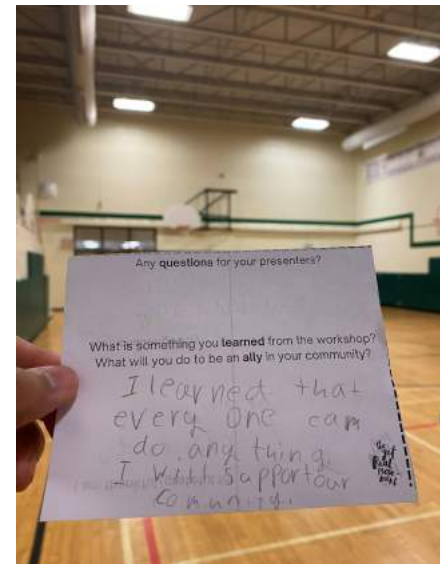 Any questions for your presenters?
What is something you learned from the workshop?
What will you do to be an ally in your community?
I learned that
every one can
do any thing.
I will support our
comunity.
get
Real